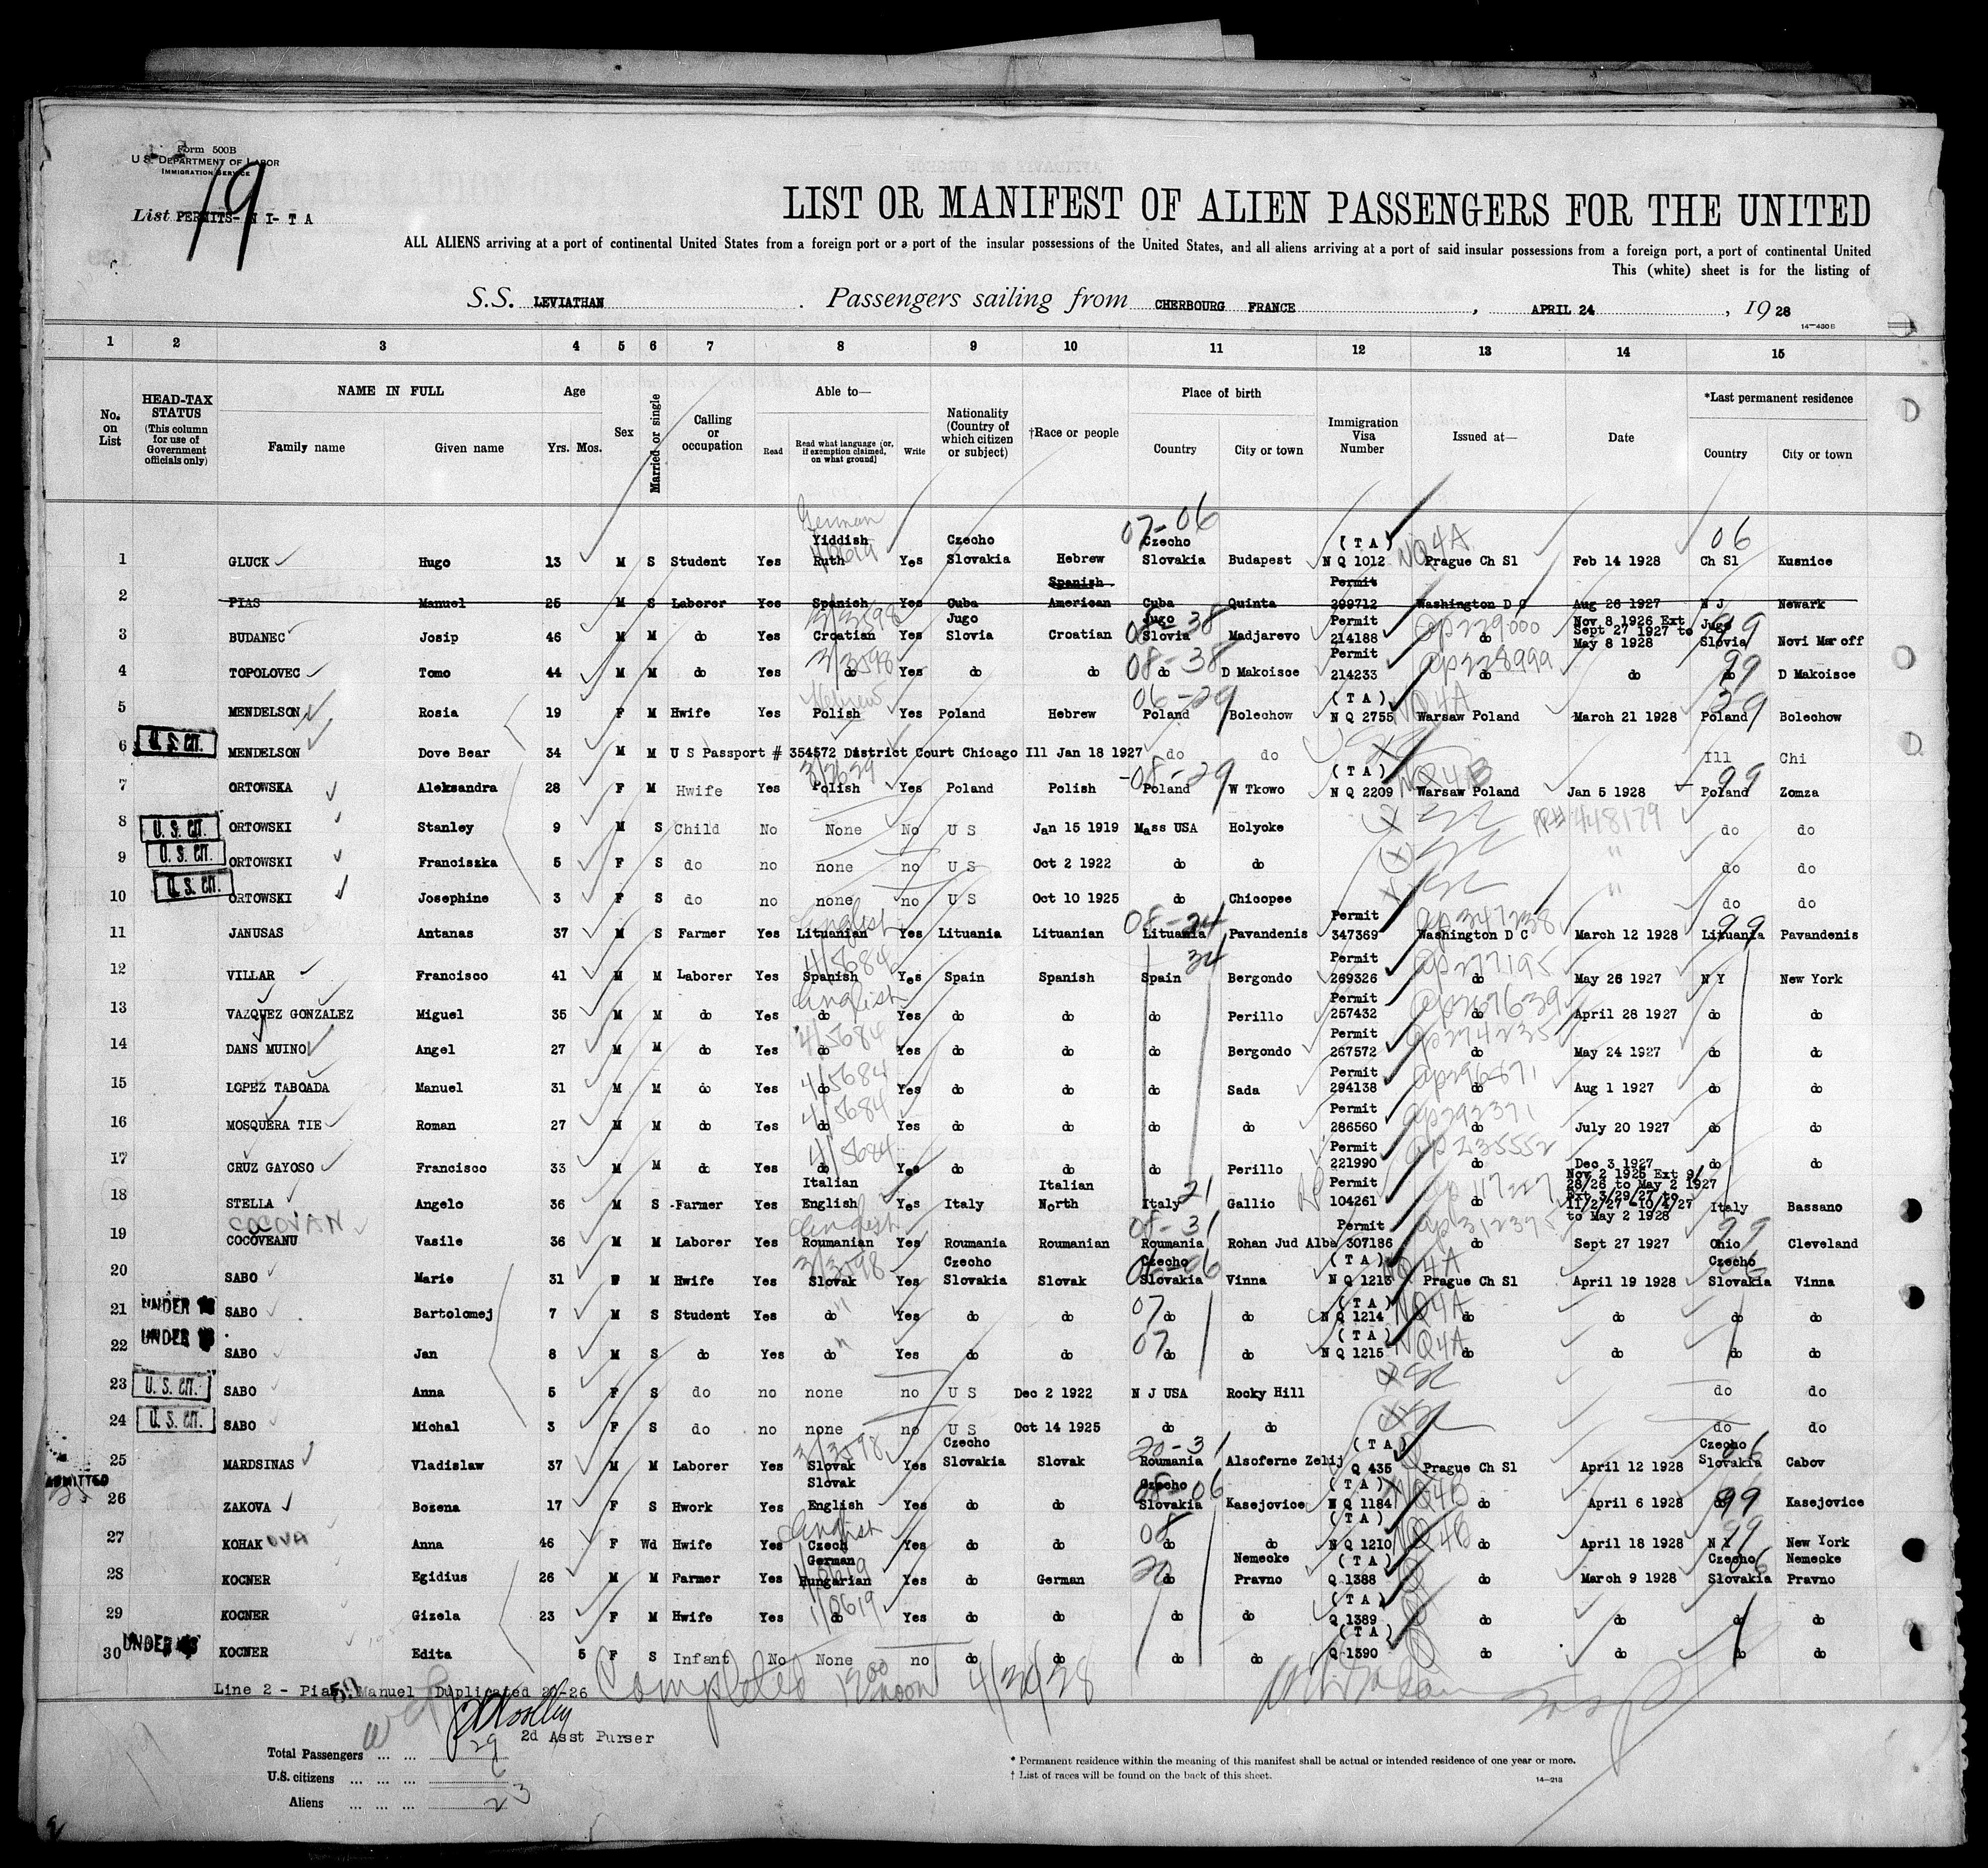 Form 500B
U. S. DEPARTMENT OF LABOR
IMMIGRATION SERVICE
19
List PERMITS- N I- T A
LIST OR MANIFEST OF ALIEN PASSENGERS FOR THE UNITED
ALL ALIENS arriving at a port of continental United States from a foreign port or a port of the insular possessions of the United States, and all aliens arriving at a port of said insular possessions from a foreign port, a port of continental United
This (white) sheet is for the listing of
S.S. LEVIATHAN . Passengers sailing from CHERBOURG FRANCE , APRIL 24 , 19 28
14—430 B
1 2 3 4 5 6 7 8 9 10 11 12 13 14 15
No. on List
HEAD-TAX STATUS (This column for use of Government officials only)
NAME IN FULL Family name Given name
Age Yrs. Mos.
Sex
Married or single
Calling or occupation
Able to— Read Read what language [or, if exemption claimed, on what ground] Write
Nationality (Country of which citizen or subject)
†Race or people
Place of birth Country City or town
Immigration Visa Number
Issued at—
Date
*Last permanent residence Country City or town
1 GLUCK Hugo 13 M S Student Yes German Yiddish Ruth Yes Czecho Slovakia Hebrew 07-06 Czecho Slovakia Budapest (TA) N Q 1012 NQ4A Prague Ch Sl Feb 14 1928 06 Ch Sl Kusnice
2 PIAS Manuel 25 M S Laborer Yes Spanish Yes Cuba Spanish American Cuba Quinta Permit 299712 Washington D C Aug 26 1927 N J Newark
3 BUDANEC Josip 46 M M do Yes 3/3598 Croatian Yes Jugo Slovia Croatian 08-38 Jugo Slovia Madjarevo Permit 214188 ap229000 do Nov 8 1926 Ext Sept 27 1927 to May 8 1928 99 Jugo Slovia Novi Maroff
4 TOPOLOVEC Tomo 44 M M do Yes 3/3598 do Yes do do 08-38 do D Makoisce Permit 214233 ap228999 do do 99 do D Makoisce
5 MENDELSON Rosia 19 F M Hwife Yes Hebrew Polish Yes Poland Hebrew 06-29 Poland Bolechow (TA) N Q 2755 NQ4A Warsaw Poland March 21 1928 29 Poland Bolechow
6 U. S. CIT. MENDELSON Dove Bear 34 M M U S Passport # 354572 District Court Chicago Ill Jan 18 1927 do do Ill Chi
7 ORTOWSKA Aleksandra 28 F M Hwife Yes Polish Yes Poland Polish 08-29 Poland W Tkowo (TA) N Q 2209 NQ4B Warsaw Poland Jan 5 1928 99 Poland Zomza
8 U. S. CIT. ORTOWSKI Stanley 9 M S Child No None No U S Jan 15 1919 Mass USA Holyoke 448179 do do
9 U. S. CIT. ORTOWSKI Franciszka 5 F S do no none no U S Oct 2 1922 do do " do do
10 U. S. CIT. ORTOWSKI Josephine 3 F S do no none no U S Oct 10 1925 do Chicopee " do do
11 JANUSAS Antanas 37 M S Farmer Yes English Lituanian Yes Lituania Lituanian 08-24 Lituania Pavandenis Permit 347369 ap347238 Washington D C March 12 1928 99 Lituania Pavandenis
12 VILLAR Francisco 41 M M Laborer Yes 4/5684 Spanish Yes Spain Spanish 34 Spain Bergondo Permit 269326 ap277195 do May 26 1927 N Y New York
13 VAZQUEZ GONZALEZ Miguel 35 M M do Yes English do Yes do do do Perillo Permit 257432 ap267639 do April 28 1927 do do
14 DANS MUINO Angel 27 M M do Yes 4/5684 do Yes do do do Bergondo Permit 267572 ap274235 do May 24 1927 do do
15 LOPEZ TABOADA Manuel 31 M M do Yes 4/5684 do Yes do do do Sada Permit 294138 ap296871 do Aug 1 1927 do do
16 MOSQUERA TIE Roman 27 M M do Yes 4/5684 do Yes do do do do Permit 286560 ap292371 do July 20 1927 do do
17 CRUZ GAYOSO Francisco 33 M M do Yes 4/5684 do Yes do do do Perillo Permit 221990 ap235552 do Dec 3 1927 do do
18 STELLA Angelo 36 M S Farmer Yes Italian English Yes Italy Italian North 21 Italy Gallio Permit 104261 do Nov 2 1925 Ext 9/28/26 to May 2 1927 Ext 3/29/27 to 11/2/27 -10/4/27 to May 2 1928 Italy Bassano
19 COCOVAN COCOVEANU Vasile 36 M M Laborer Yes English Roumanian Yes Roumania Roumanian 08-31 Roumania Rohan Jud Alba Permit 307186 ap312375 do Sept 27 1927 99 Ohio Cleveland
20 SABO Marie 31 F M Hwife Yes 3/3598 Slovak Yes Czecho Slovakia Slovak 06-06 Czecho Slovakia Vinna (TA) N Q 1213 NQ4A Prague Ch Sl April 19 1928 06 Czecho Slovakia Vinna
21 UNDER SABO Bartolomej 7 M S Student Yes do " Yes do do 07 do do (TA) N Q 1214 NQ4A do do do do
22 UNDER SABO Jan 8 M S do Yes do " Yes do do 07 do do (TA) N Q 1215 NQ4A do do do do
23 U. S. CIT. SABO Anna 5 F S do no none no U S Dec 2 1922 N J USA Rocky Hill do do
24 U. S. CIT. SABO Michal 3 F S do no none no U S Oct 14 1925 do do do do
ADMITTED
25 MARDSINAS Vladislaw 37 M M Laborer Yes 3/3598 Slovak Yes Czecho Slovakia Slovak 20-31 Roumania Alsoferne Zelij (TA) Q 435 Prague Ch Sl April 12 1928 06 Czecho Slovakia Cabov
26 ZAKOVA Bozena 17 F S Hwork Yes Slovak English Yes do do 08-06 Czecho Slovakia Kasejovice (TA) N Q 1184 NQ4B do April 6 1928 99 do Kasejovice
27 KOHAK OVA Anna 46 F Wd Hwife Yes English Czech Yes do do 08 do do (TA) N Q 1210 NQ4B do April 18 1928 99 N Y New York
28 KOCNER Egidius 26 M M Farmer Yes German Hungarian Yes do German 20 do Nemecke Pravno (TA) Q 1388 do March 9 1928 06 Czecho Slovakia Nemecke Pravno
29 KOCNER Gizela 23 F M Hwife Yes 1/0619 do Yes do do do do (TA) Q 1389 do do do do
30 UNDER KOCNER Edita 5 F S Infant No None no do do do do (TA) Q-1390 do do do do
Line 2 - Pias, Manuel Duplicated 20-26
Completed 12 00 noon 4/30/28
2d Asst Purser
Total Passengers ... ... 29
U.S. citizens ... ... ... 6
Aliens ... ... ... 23
* Permanent residence within the meaning of this manifest shall be actual or intended residence of one year or more.
† List of races will be found on the back of this sheet.
14—213